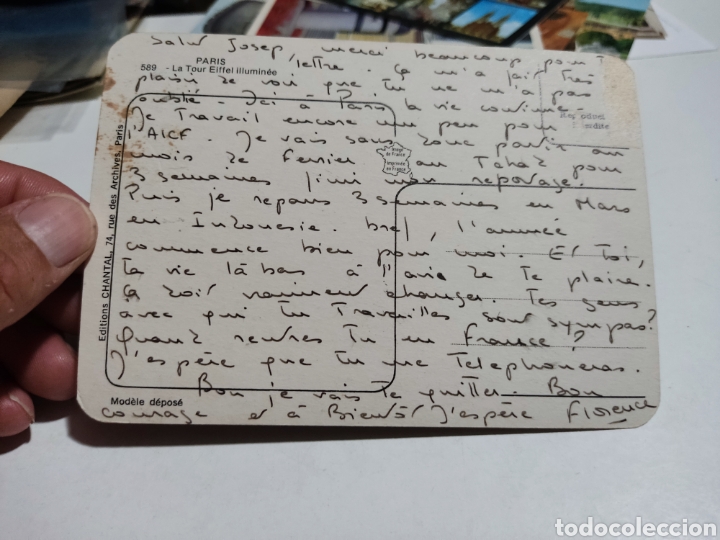 Salut Josep, merci beaucoup pour
PARIS
lettre. Ça m'a fait très
589 - La Tour Eiffel illuminée
plaisir de voir que tu ne m'a pas
oublié. Ici à Paris la vie continue.
Je travail encore un peu pour
l'AICF. Je vais sans doute partir au
mois de fevrier au Tchad pour
3 semaines finir mon reportage.
Puis je repars 3 semaines en Mars
en Indonesie. bref, l'année
commence bien pour moi. Et toi,
ta vie là bas à l'air de te plaire.
ça doit vraiment changer. Tes gens
avec qui tu travailles sont sympas?
Quand rentres tu en France?
J'espère que tu me telephoneras.
Bon je vais te quitter. Bon
courage et à Bientôt j'espère Florence
Modèle déposé
Editions CHANTAL, 74, rue des Archives, Paris
Imprimé
en France
todocoleccion